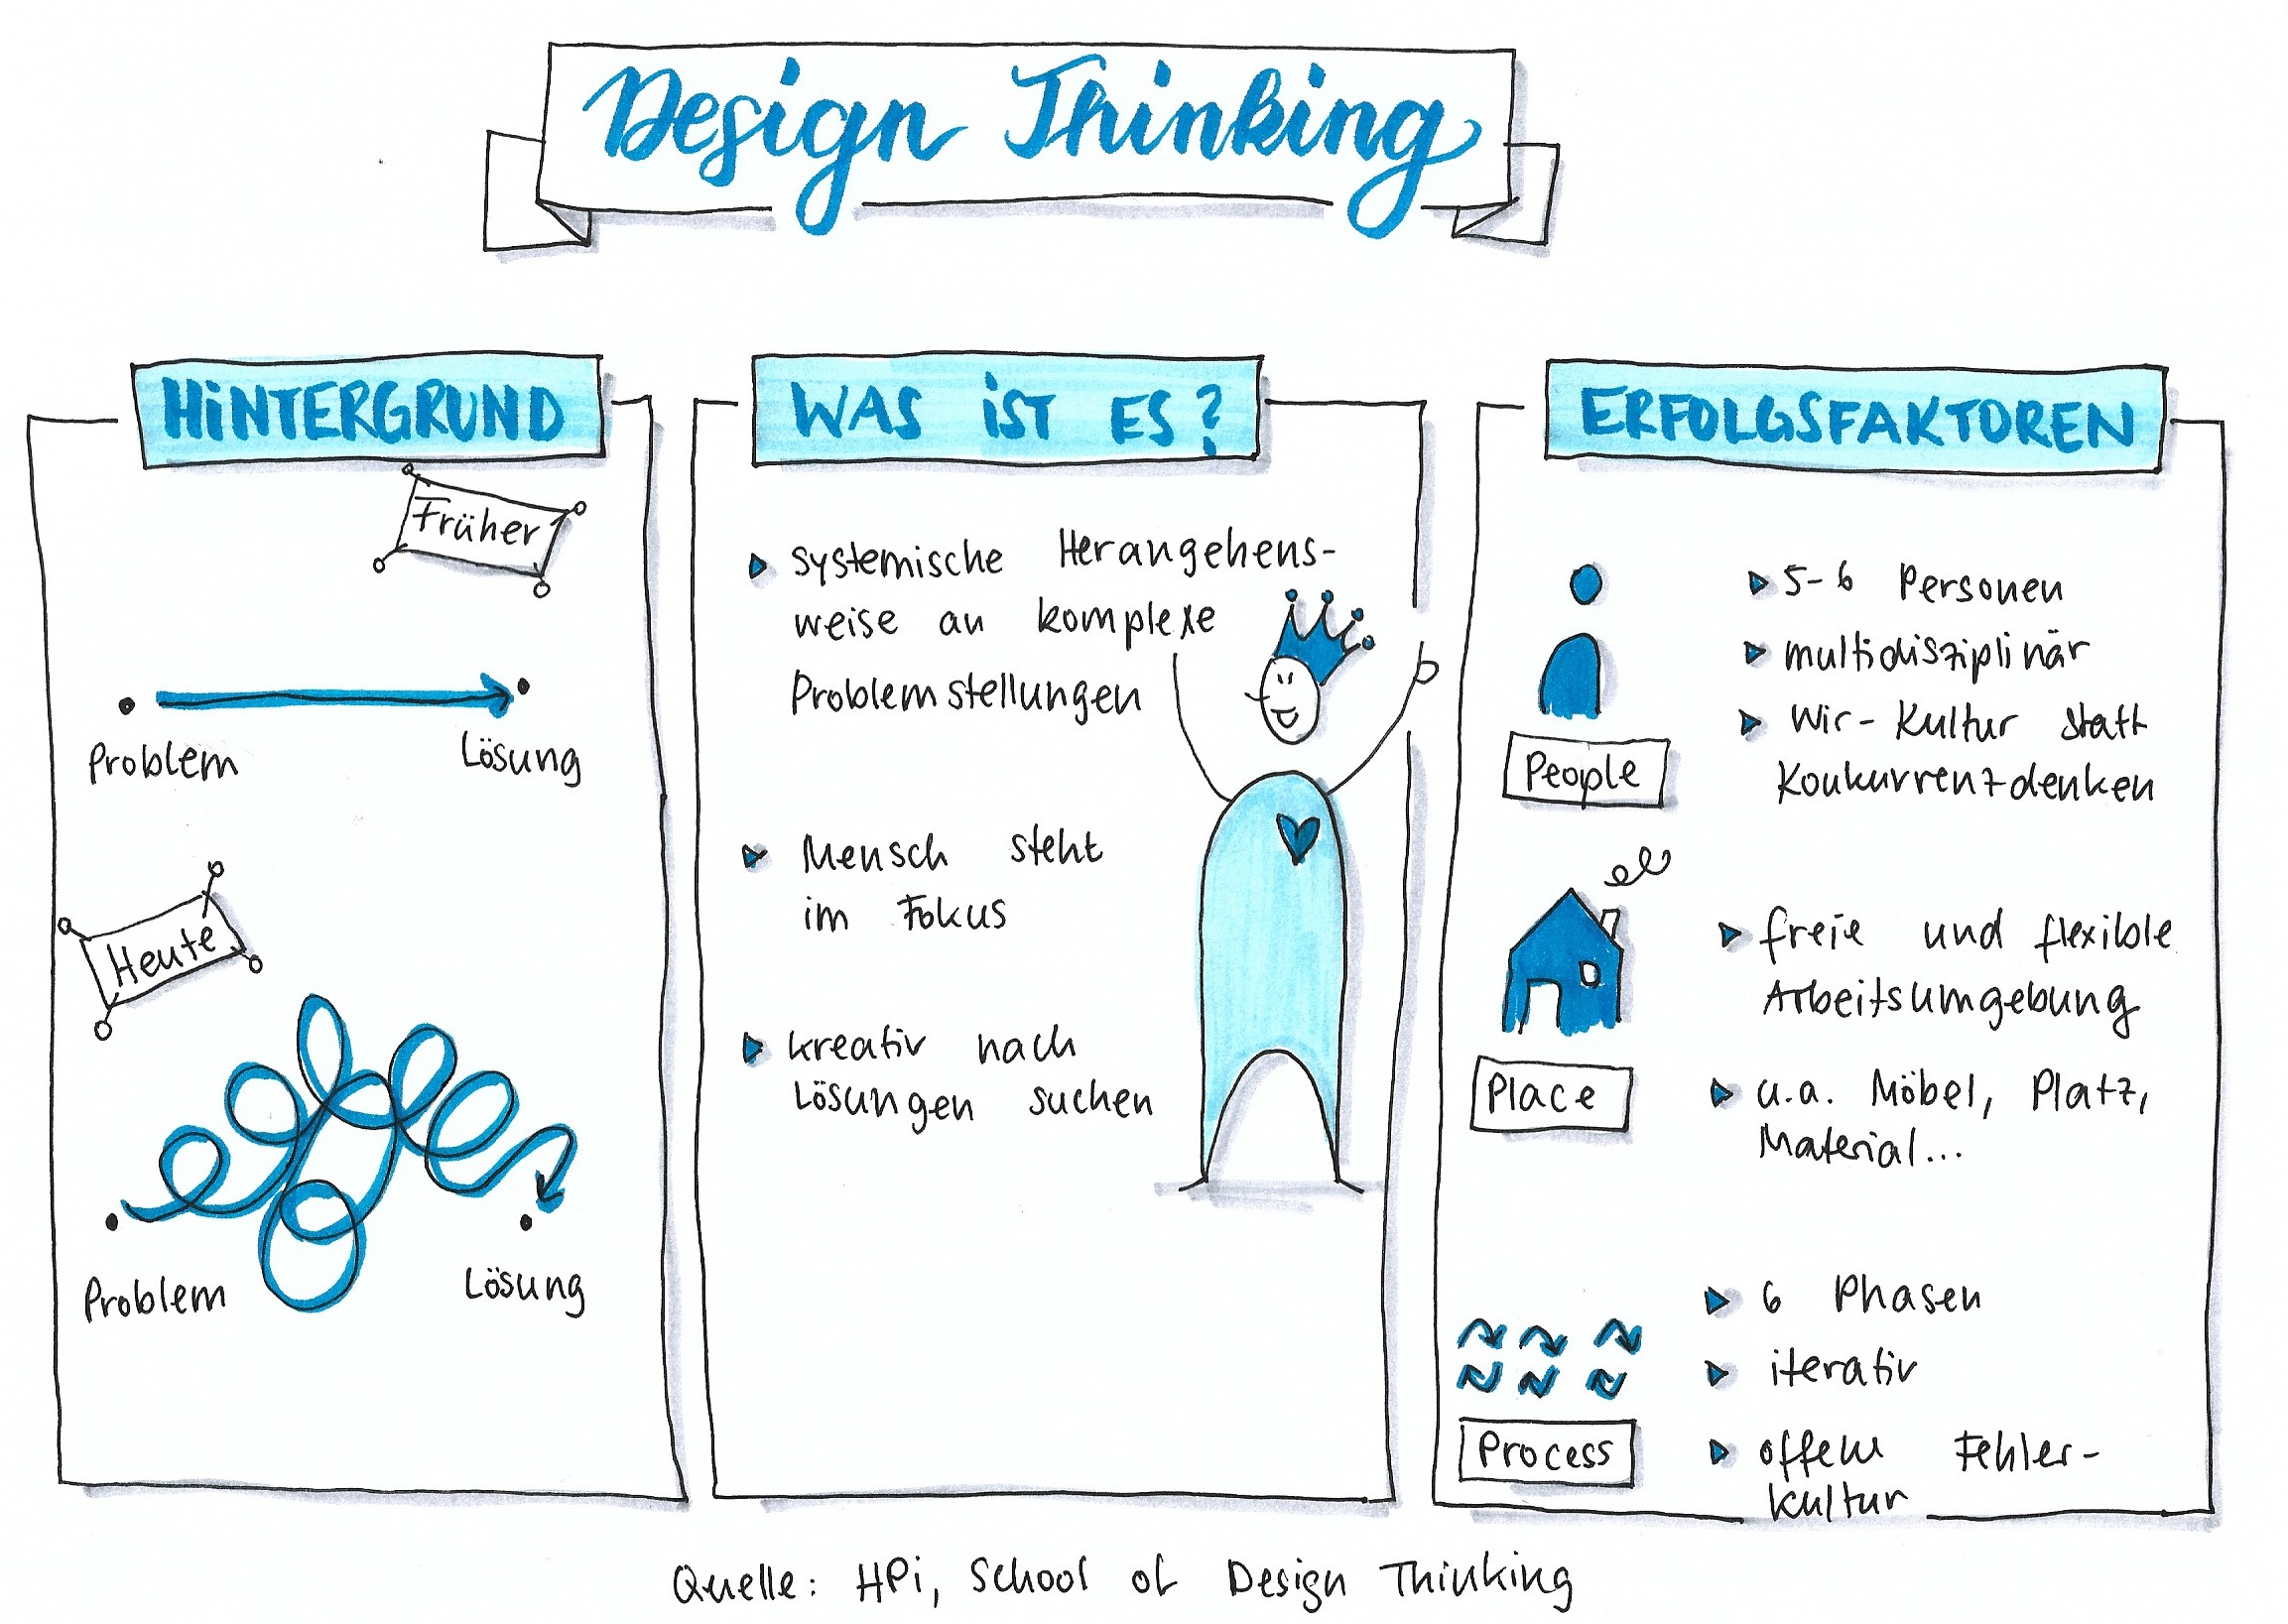 Design Thinking
HiNTERGRUND
Früher
Problem
Lösung
Heute
Problem
Lösung
WAS iST ES?
systemische Herangehens-
weise an komplexe
Problemstellungen
Mensch steht
im Fokus
kreativ nach
Lösungen suchen
ERFOLGSFAKTOREN
People
5-6 Personen
multidisziplinär
Wir-Kultur statt
Konkurrenzdenken
Place
freie und flexible
Arbeitsumgebung
u.a. Möbel, Platz,
Material...
Process
6 Phasen
iterativ
offene Fehler-
kultur
Quelle: HPi, School of Design Thinking